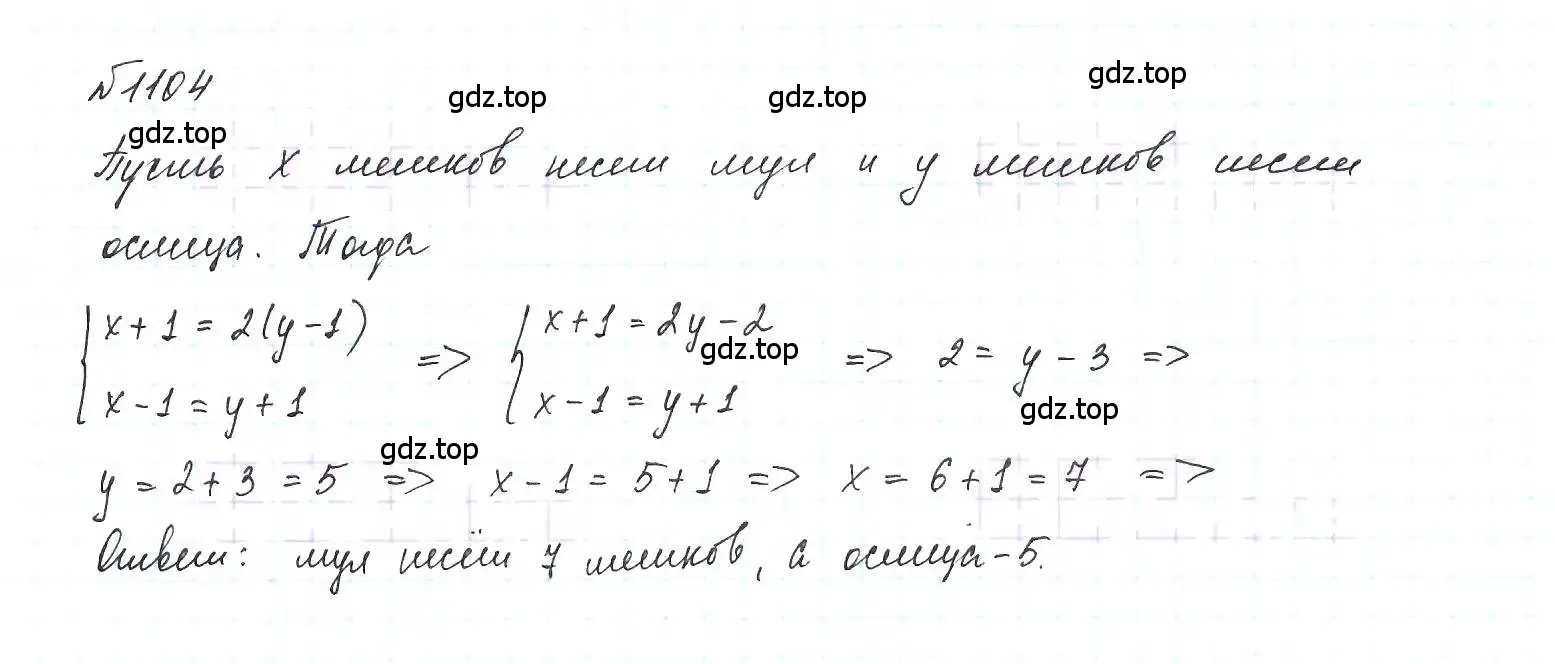 №1104
gdz.top gdz.top gdz.top
gdz.top
Пусть x мешков несет мул и y мешков несет
ослица. Тогда
{ x+1 = 2(y-1) => { x+1 = 2y-2 => 2 = y - 3 =>
x-1 = y+1 x-1 = y+1
gdz.top
gdz.top
gdz.top
y = 2+3 = 5 => x-1 = 5+1 => x = 6+1 = 7 =>
Ответ: мул несёт 7 мешков, а ослица-5.